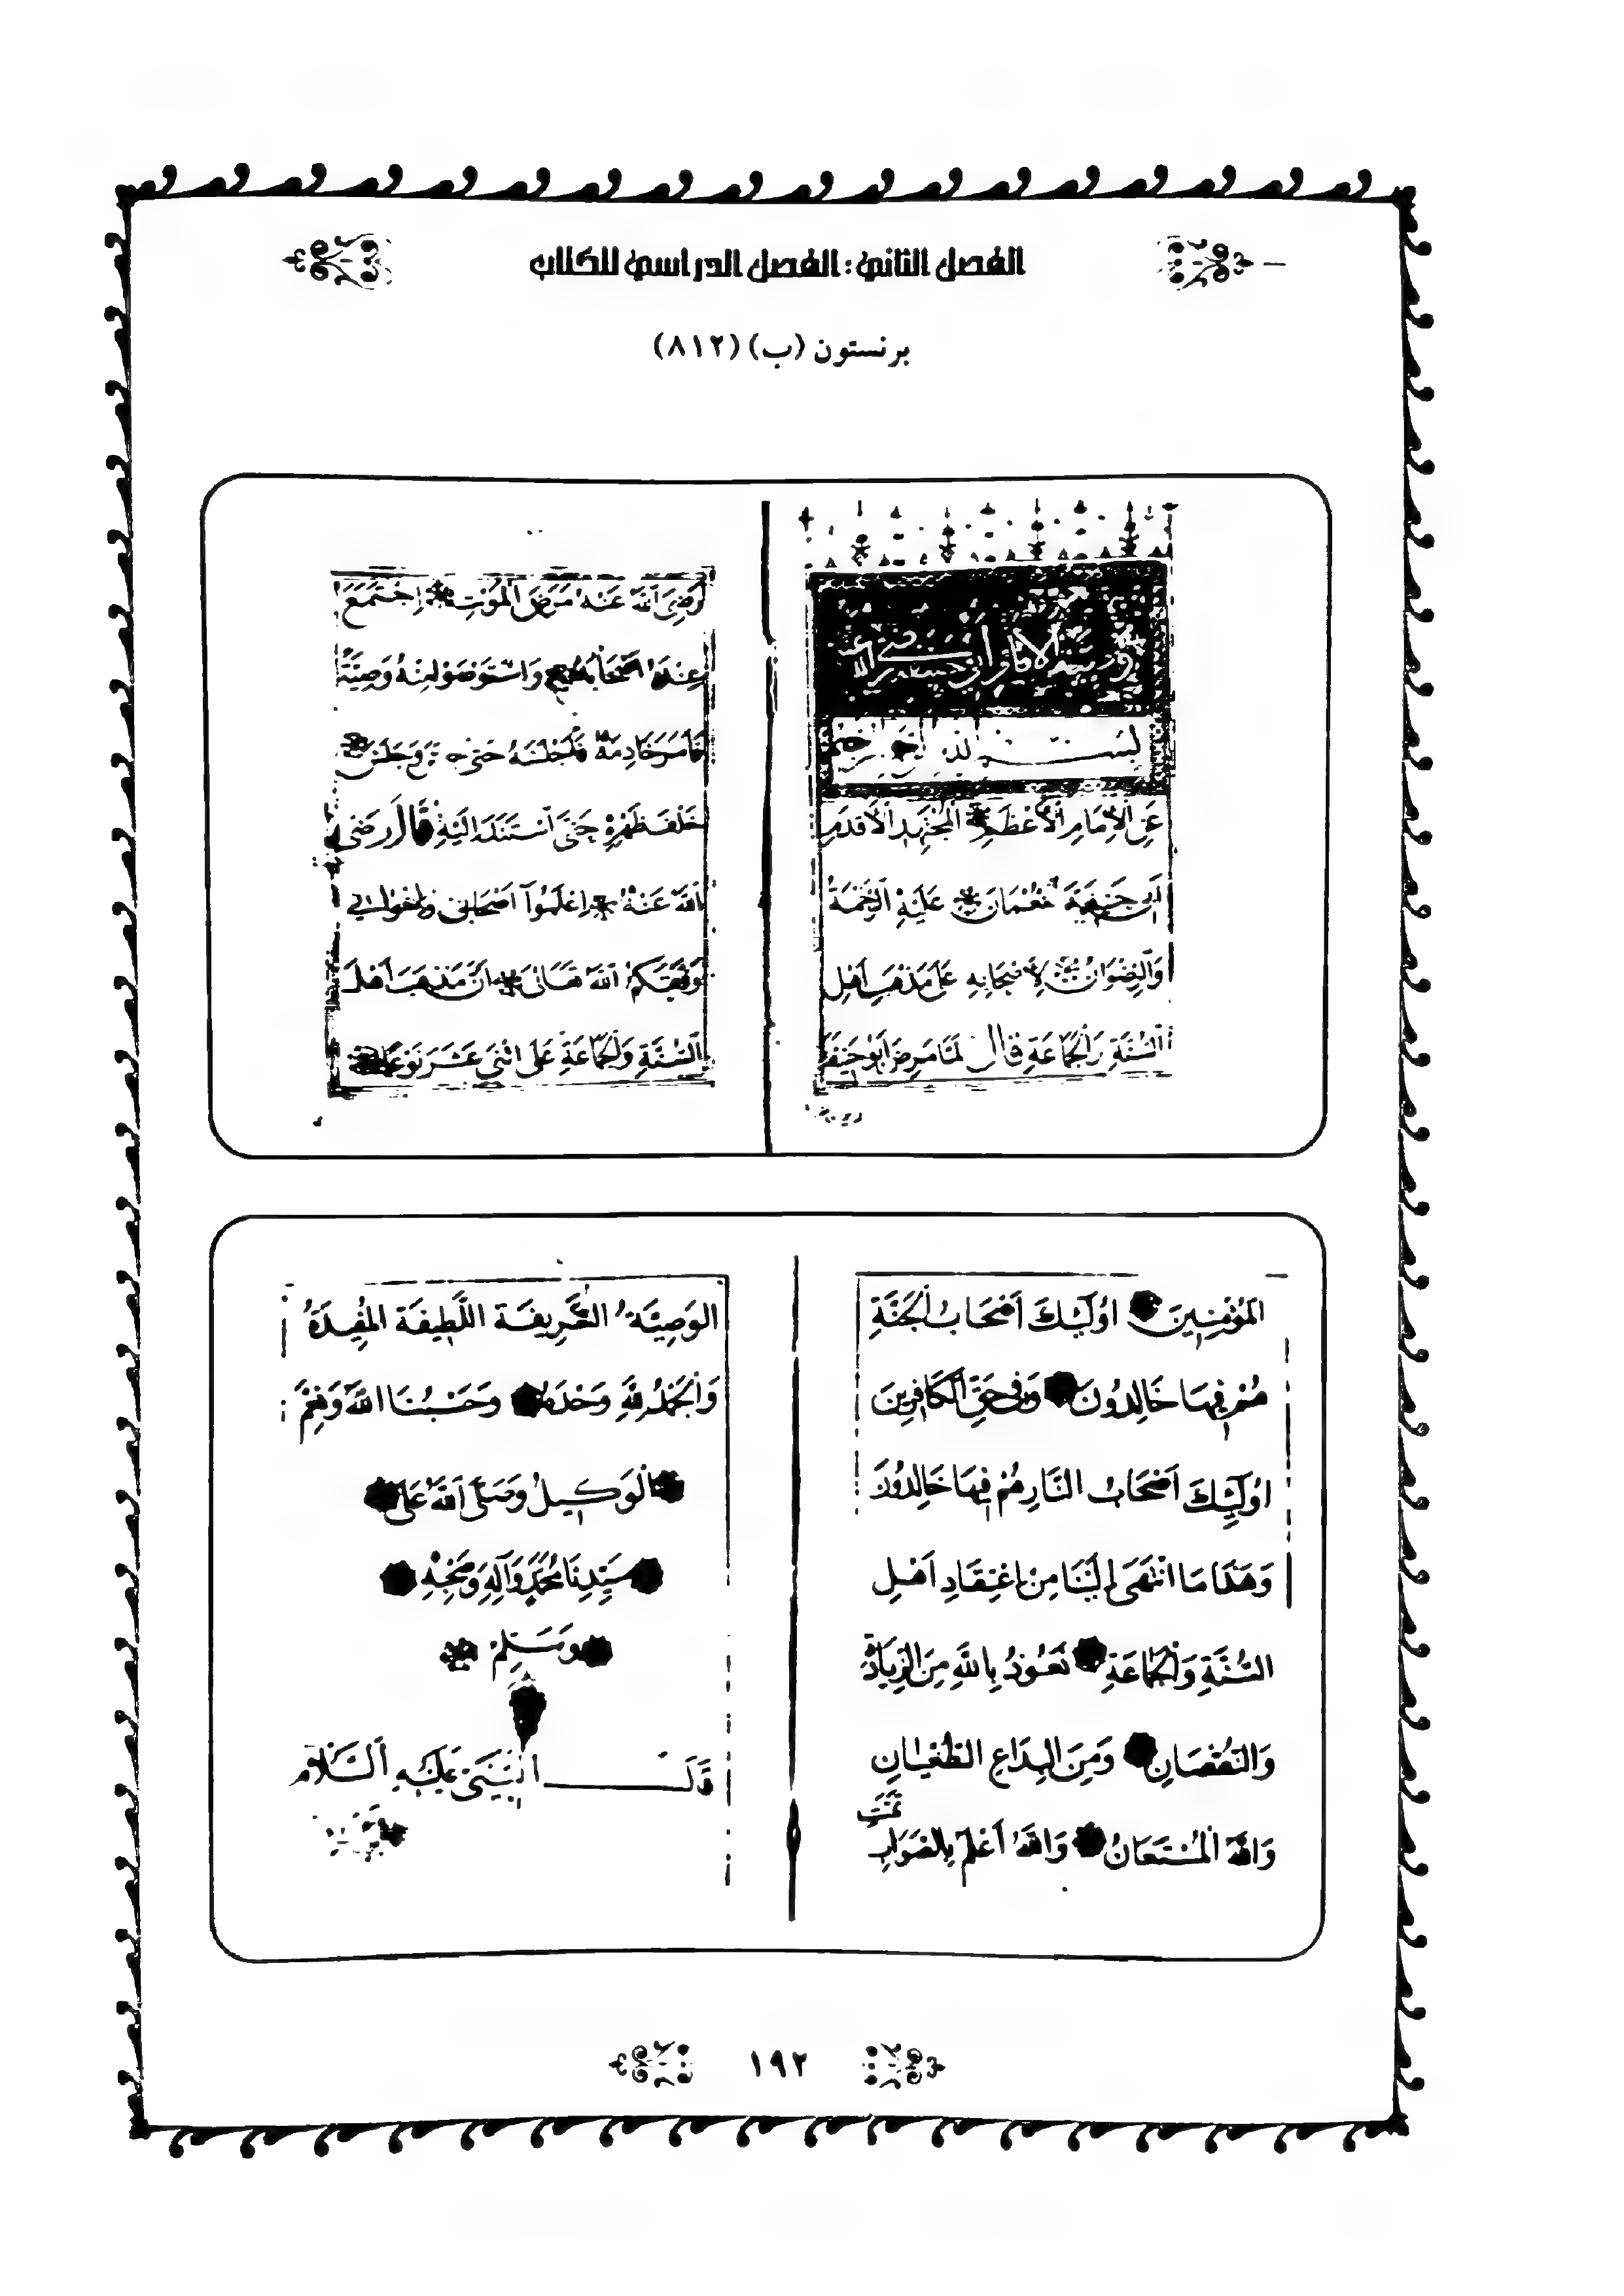 الفصل الثاني: الفصل الدراسي للكتاب
برنستون (ب) (٨١٢)
عَنِ الْإِمَامِ الْأَعْظَمِ الْمُجْتَهِدِ الْأَقْدَمِ
أَبِي حَنِيفَةَ نُعْمَانَ عَلَيْهِ الرَّحْمَةُ
وَالرِّضْوَانُ لِأَصْحَابِهِ عَلَى مَذْهَبِ أَهْلِ
السُّنَّةِ وَالْجَمَاعَةِ قَالَ لَمَّا مَرِضَ أَبُو حَنِيفَةَ
رَضِيَ اللَّهُ عَنْهُ مَرَضَ الْمَوْتِ اِجْتَمَعَ
عِنْدَهُ أَصْحَابُهُ وَاسْتَوْصَوْا مِنْهُ وَصِيَّةً
فَأَمَرَ خَادِمَهُ فَأَجْلَسَهُ حَتَّى وَجَلَسَ
خَلْفَ ظَهْرِهِ حَتَّى اسْتَنَدَ إِلَيْهِ قَالَ رَضِيَ
اللَّهُ عَنْهُ اِعْلَمُوا أَصْحَابِي وَإِخْوَانِي
وَفَّقَكُمُ اللَّهُ تَعَالَى أَنَّ مَذْهَبَ أَهْلِ
السُّنَّةِ وَالْجَمَاعَةِ عَلَى اثْنَيْ عَشَرَ نَوْعًا
الْمُؤْمِنِينَ اُولَٰئِكَ أَصْحَابُ الْجَنَّةِ
هُمْ فِيهَا خَالِدُونَ وَفِي حَقِّ الْكَافِرِينَ
اُولَٰئِكَ أَصْحَابُ النَّارِ هُمْ فِيهَا خَالِدُونَ
وَهَذَا مَا انْتَهَى إِلَيْنَا مِنْ اِعْتِقَادِ أَهْلِ
السُّنَّةِ وَالْجَمَاعَةِ نَعُوذُ بِاللَّهِ مِنَ الزِّيَادَةِ
وَالنُّقْصَانِ وَمِنَ الْبِدَاعِ الطُّغْيَانِ
وَاللَّهُ الْمُسْتَعَانُ وَاللَّهُ أَعْلَمُ بِالصَّوَابِ
تَمَّتِ
الْوَصِيَّةُ الشَّرِيفَةِ اللَّطِيفَةِ الْمُفِيدَةُ
وَالْحَمْدُ لِلَّهِ وَحْدَهُ وَحَسْبُنَا اللَّهُ وَنِعْمَ
الْوَكِيلُ وَصَلَّى اللَّهُ عَلَى
سَيِّدِنَا مُحَمَّدٍ وَآلِهِ وَصَحْبِهِ
وَسَلِّمْ
قَالَ النَّبِيُّ عَلَيْهِ السَّلَامُ
١٩٢